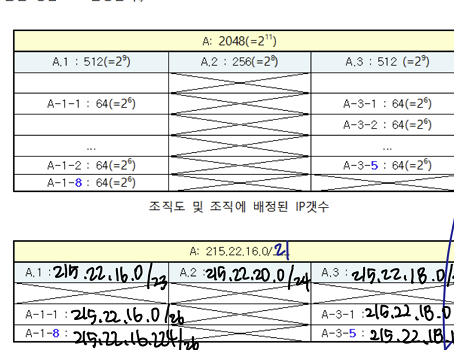 A: 2048(=2¹¹)
A.1 : 512(=2⁹) A.2 : 256(=2⁸) A.3 : 512 (=2⁹)
A-1-1 : 64(=2⁶) A-3-1 : 64(=2⁶)
A-3-2 : 64(=2⁶)
... ...
A-1-2 : 64(=2⁶) A-3-5 : 64(=2⁶)
A-1-8 : 64(=2⁶)
조직도 및 조직에 배정된 IP갯수
A: 215.22.16.0/21
A.1 : 215.22.16.0/23 A.2 : 215.22.20.0/24 A.3 : 215.22.18.0/
A-1-1 : 215.22.16.0/26 A-3-1 : 215.22.18.0
A-1-8 : 215.22.16.224/26 A-3-5 : 215.22.18.